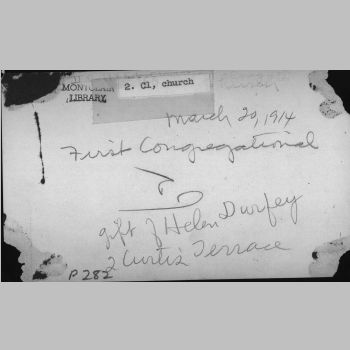 MONTCLAIR
LIBRARY
2. Cl, church
March 20, 1914
First Congregational
gift of Helen Durfey
2 Curtis Terrace
P 282